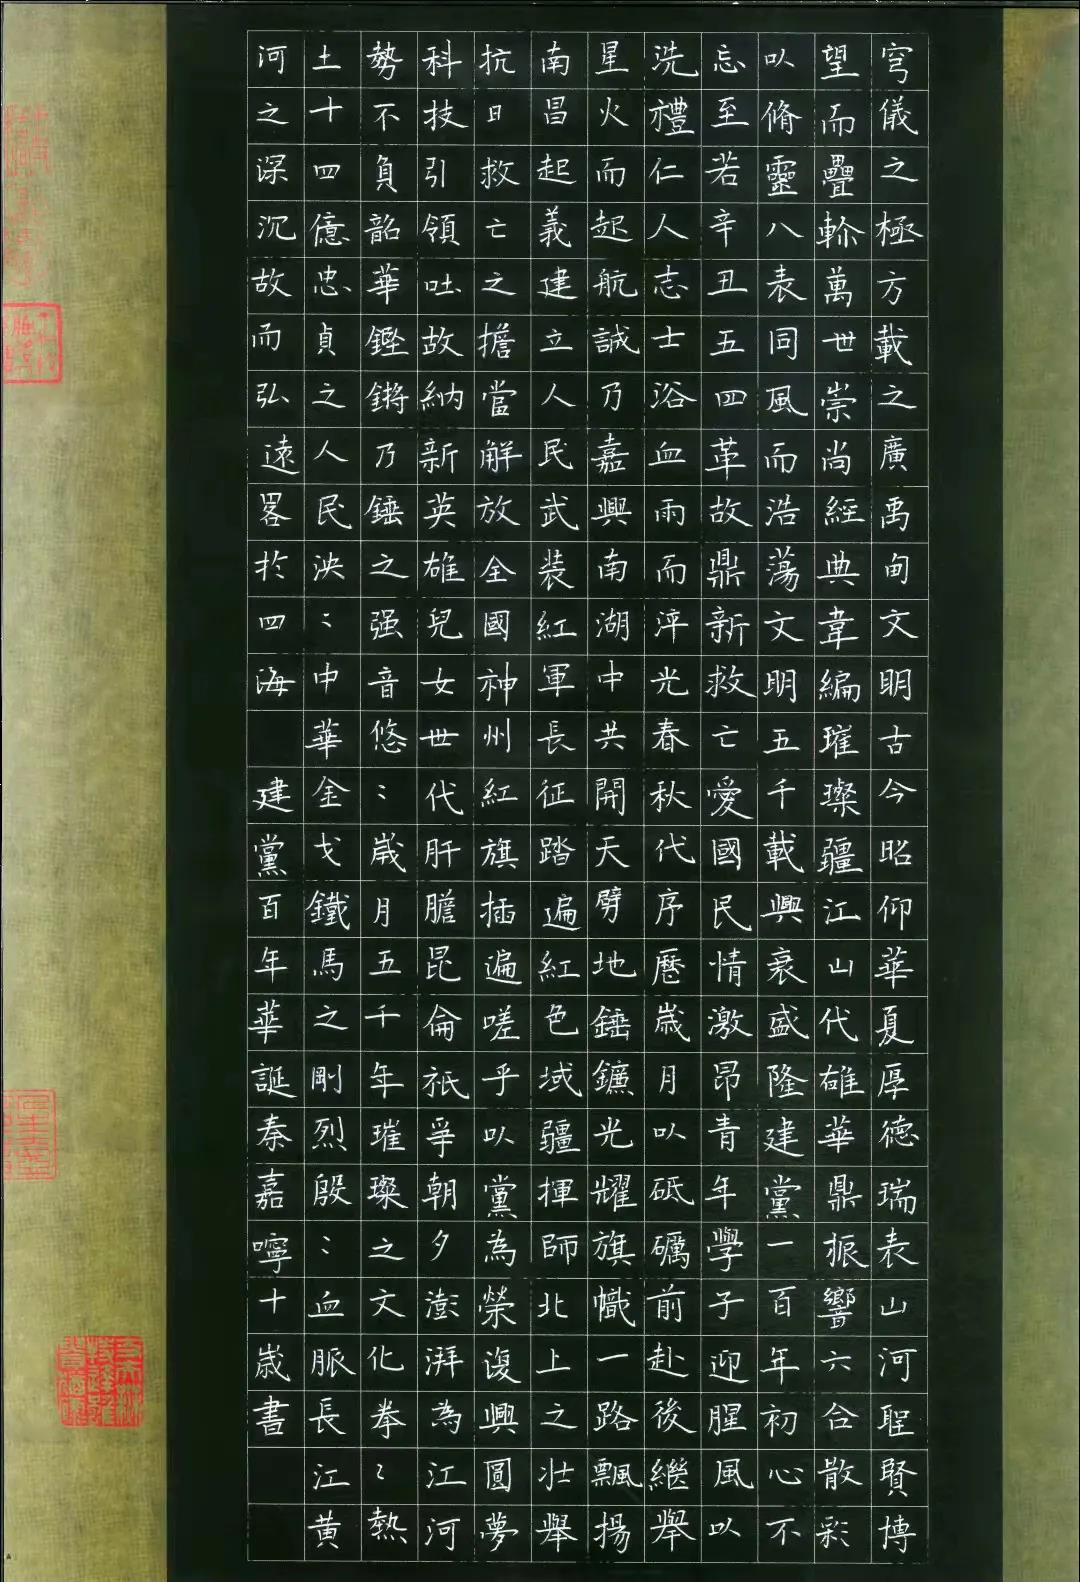 穹儀之極方載之廣禹甸文明古今昭仰華夏厚德瑞表山河聖賢博
望而疊軫萬世崇尚經典韋編璀璨疆江山代雄華鼎振響六合散彩
以脩靈八表同風而浩蕩文明五千載興衰盛隆建黨一百年初心不
忘至若辛丑五四革故鼎新救亡愛國民情激昂青年學子迎腥風以
洗禮仁人志士浴血雨而淬光春秋代序歷歲月以砥礪前赴後繼舉
星火而起航誠乃嘉興南湖中共開天劈地錘鐮光耀旗幟一路飄揚
南昌起義建立人民武裝紅軍長征踏遍紅色域疆揮師北上之壯舉
抗日救亡之擔當解放全國神州紅旗插遍嗟乎以黨為榮復興圓夢
科技引領吐故納新英雄兒女世代肝膽昆侖祇爭朝夕澎湃為江河
勢不負韶華鏗鏘乃錘之强音悠〻歲月五千年璀璨之文化拳〻熱
土十四億忠貞之人民泱〻中華金戈鐵馬之剛烈殷〻血脈長江黃
河之深沉故而弘遠畧於四海 建黨百年華誕秦嘉嚀十歲書